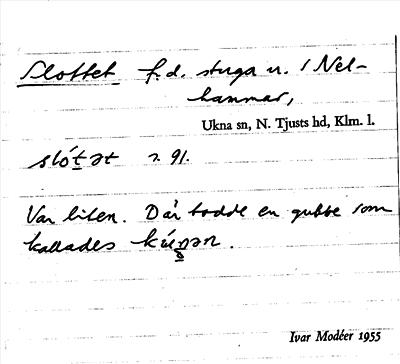 Slottet f.d. stuga u. / Nel-
hammar,
Ukna sn, N. Tjusts hd, Klm. l.
slót̲ət s. 91.
Var liten. Där bodde en gubbe som
kallades
Ivar Modéer 1955